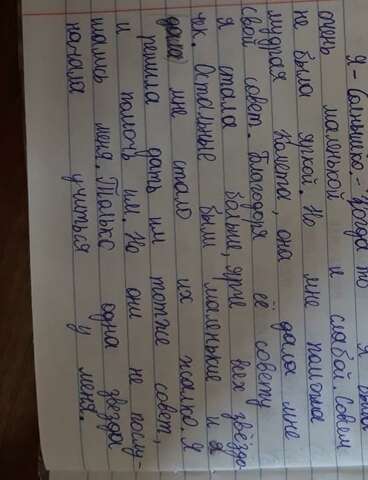 Я - Солнышко. Когда то я была
очень маленькой и слабой. Совсем
не была яркой. Но мне помогла
мудрая Комета, она дала мне
свой совет. Благодоря её совету
я стала больше, ярче всех звёздо-
чек. Остальные были маленькие и я
мне стало их жалко. Я
решила дать им тотже совет,
и помочь им. Но они не послу-
шались меня. Только одна звезда
начала учиться у меня.